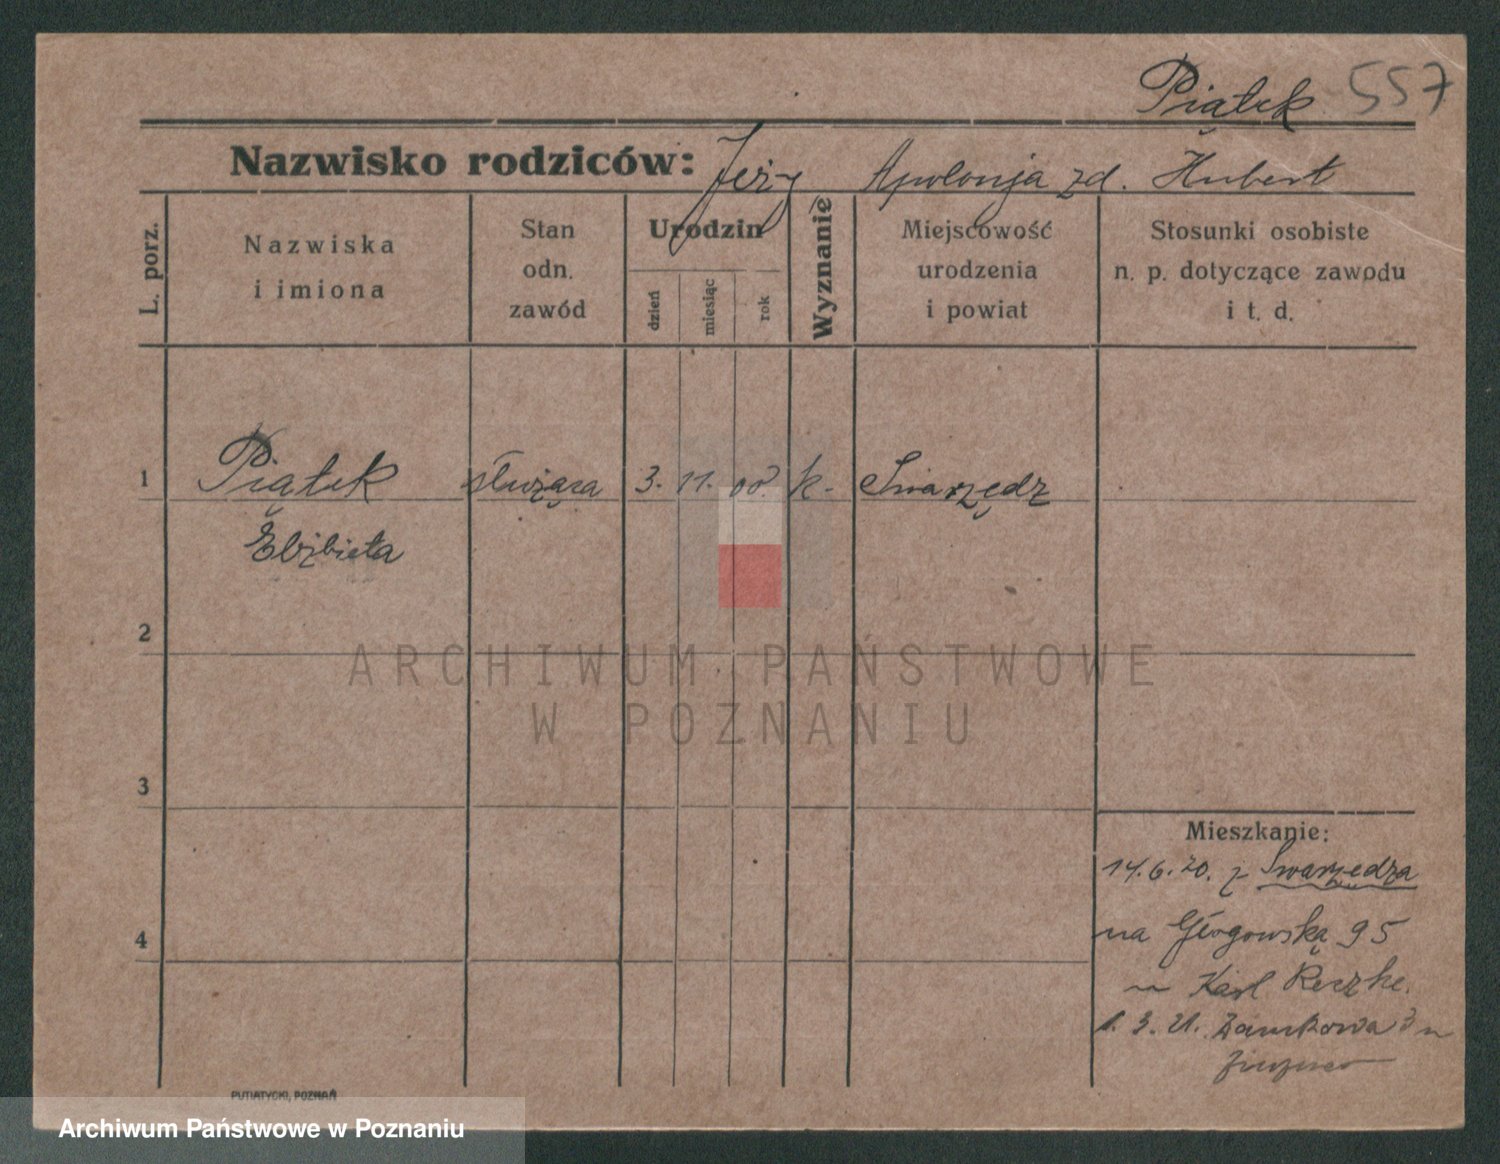 Piątek 557
Nazwisko rodziców: Jerzy Apolonja zd. Hubert
L. porz.
Nazwiska
i imiona
Stan
odn.
zawód
Urodzin
dzień
miesiąc
rok
Wyznanie
Miejscowość
urodzenia
i powiat
Stosunki osobiste
n. p. dotyczące zawodu
i t. d.
1 Piątek służąca 3. 11. 00. k. Swarzędz
Elżbieta
2
ARCHIWUM PAŃSTWOWE
W POZNANIU
3
Mieszkanie:
14.6.20. z Swarzędza
4
na Głogowską 95
u Karl Reczke.
1. 3. 21. Zamkowa 3 u
PUTIATYCKI, POZNAŃ
Archiwum Państwowe w Poznaniu